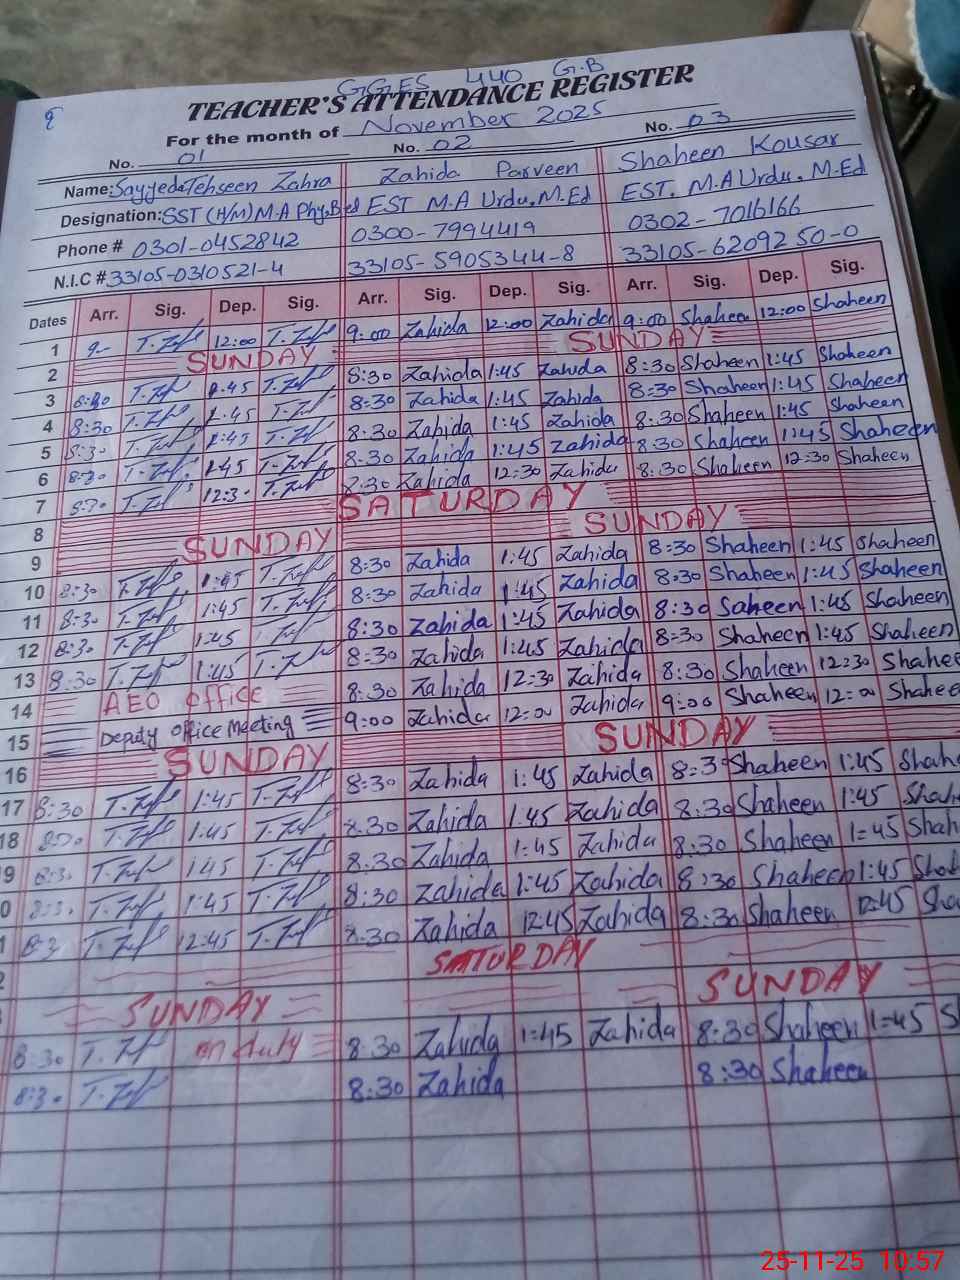 8
GGES 440 G.B
TEACHER'S ATTENDANCE REGISTER
For the month of November 2025
No. 01 No. 02 No. 03
Name: Sayyeda Tehseen Zahra Zahida Parveen Shaheen Kousar
Designation: SST (H/M) M.A Phy, B.ed EST M.A Urdu, M.Ed EST. M.A Urdu. M.Ed
Phone # 0301-0452842 0300-7994419 0302-7016166
N.I.C # 33105-0310521-4 33105-5905344-8 33105-6209250-0
Dates Arr. Sig. Dep. Sig. Arr. Sig. Dep. Sig. Arr. Sig. Dep. Sig.
1 9- 12:00 9:00 Zahida 12:00 Zahida 9:00 Shaheen 12:00 Shaheen
2 SUNDAY SUNDAY
3 8:30 1:45 8:30 Zahida 1:45 Zahida 8:30 Shaheen 1:45 Shaheen
4 8:30 1:45 8:30 Zahida 1:45 Zahida 8:30 Shaheen 1:45 Shaheen
5 8:30 1:45 8:30 Zahida 1:45 Zahida 8:30 Shaheen 1:45 Shaheen
6 8:30 1:45 8:30 Zahida 1:45 Zahida 8:30 Shaheen 1:45 Shaheen
7 8:30 12:30 8:30 Zahida 12:30 Zahida 8:30 Shaheen 12:30 Shaheen
8 SATURDAY
9 SUNDAY SUNDAY
10 8:30 1:45 8:30 Zahida 1:45 Zahida 8:30 Shaheen 1:45 Shaheen
11 8:30 1:45 8:30 Zahida 1:45 Zahida 8:30 Shaheen 1:45 Shaheen
12 8:30 1:45 8:30 Zahida 1:45 Zahida 8:30 Saheen 1:45 Shaheen
13 8:30 1:45 8:30 Zahida 1:45 Zahida 8:30 Shaheen 1:45 Shaheen
14 AEO office 8:30 Zahida 12:30 Zahida 8:30 Shaheen 12:30 Shahee
15 Deputy office Meeting 9:00 Zahida 12:00 Zahida 9:00 Shaheen 12:00 Shahee
16 SUNDAY SUNDAY
17 8:30 1:45 8:30 Zahida 1:45 Zahida 8:3 Shaheen 1:45 Shahe
18 8:30 1:45 8:30 Zahida 1:45 Zahida 8:30 Shaheen 1:45 Shah
9 8:30 1:45 8:30 Zahida 1:45 Zahida 8:30 Shaheen 1=45 Shah
0 8:30 1:45 8:30 Zahida 1:45 Zahida 8:30 Shaheen 1:45 Shah
1 8:3 12:45 8:30 Zahida 12:45 Zahida 8:30 Shaheen 12:45 Sha
2 SATURDAY
SUNDAY SUNDAY
8:30 on duty 8:30 Zahida 1:45 Zahida 8:30 Shaheen 1=45 S
8:30 8:30 Zahida 8:30 Shaheen
25-11-25 10:57